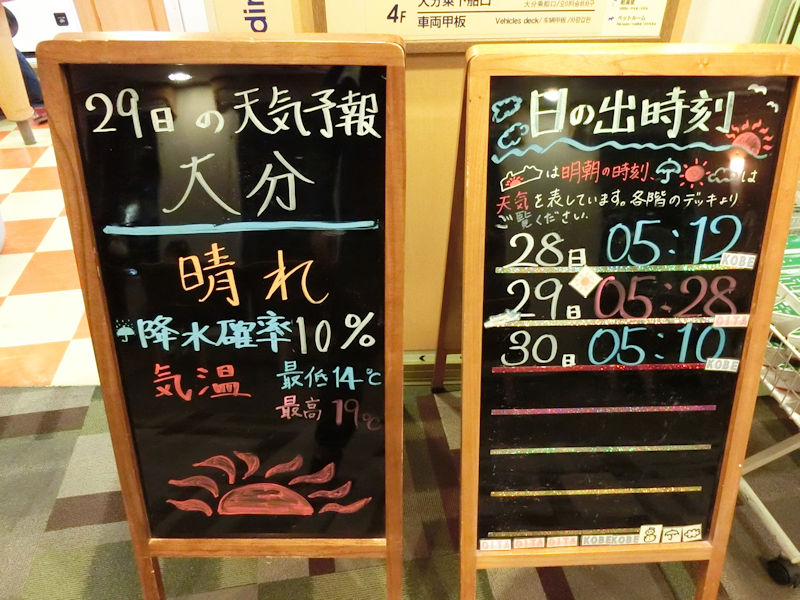 din
4F
大分乗下船口
車両甲板
Vehicles deck/车辆甲板/차량갑판
ペットルーム
29日の天気予報
大分
晴れ
降水確率10%
気温
最低14℃
最高19℃
日の出時刻
は明朝の時刻、
は
天気を表しています。各階のデッキより
ご覧ください.
28日 05:12
KOBE
29日 05:28
OITA
30日 05:10
KOBE
OITA OITA OITA KOBE KOBE